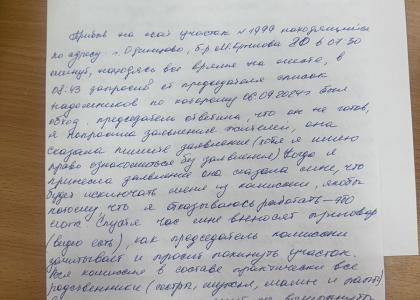 Прибыв на свой участок №1999 находящийся
по адресу г. Одинцово, б-р М. Крылова 20 в 07:30
минут, находясь всё время на месте, в
08:43 запросила от председателя список
надомников по которому 06.09.2024г был
обход. председатель ответила, что он не готов,
я попросила заявление жителей, она
сказала пишите заявление (хотя я имею
право ознакомиться без заявления) Когда я
принесла заявление она сказала мне, что
будет исключать меня из комиссии, якобы
потому что я отказываюсь работать – это
ложь. Спустя час мне выносят приговор
(видео есть), как председатель комиссии
зачитывает и просит покинуть участок.
Вся комиссия в составе практически все
родственники (сёстры, мужья, мамы и папы)